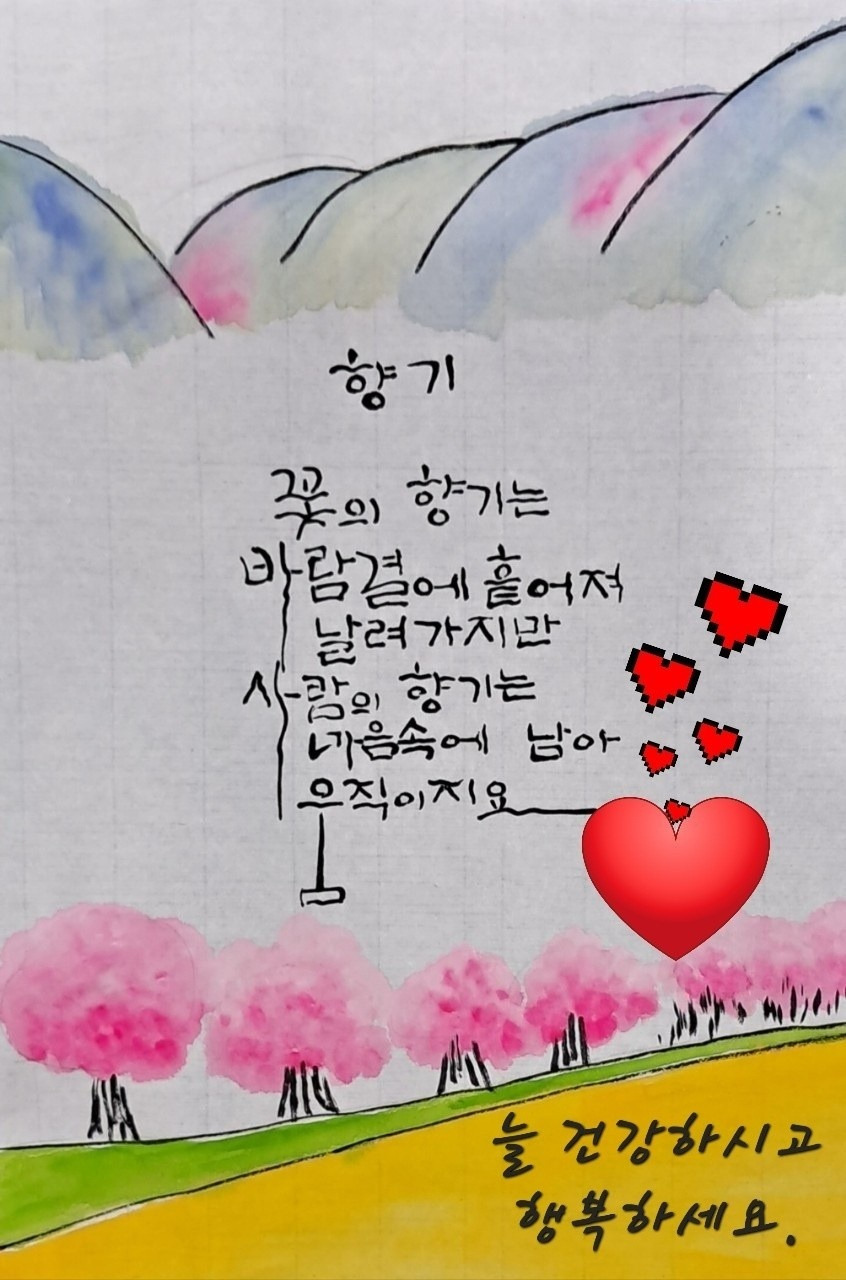 향기
꽃의 향기는
바람결에 흩어져
날려가지만
사람의 향기는
마음속에 남아
움직이지요
늘 건강하시고
행복하세요.